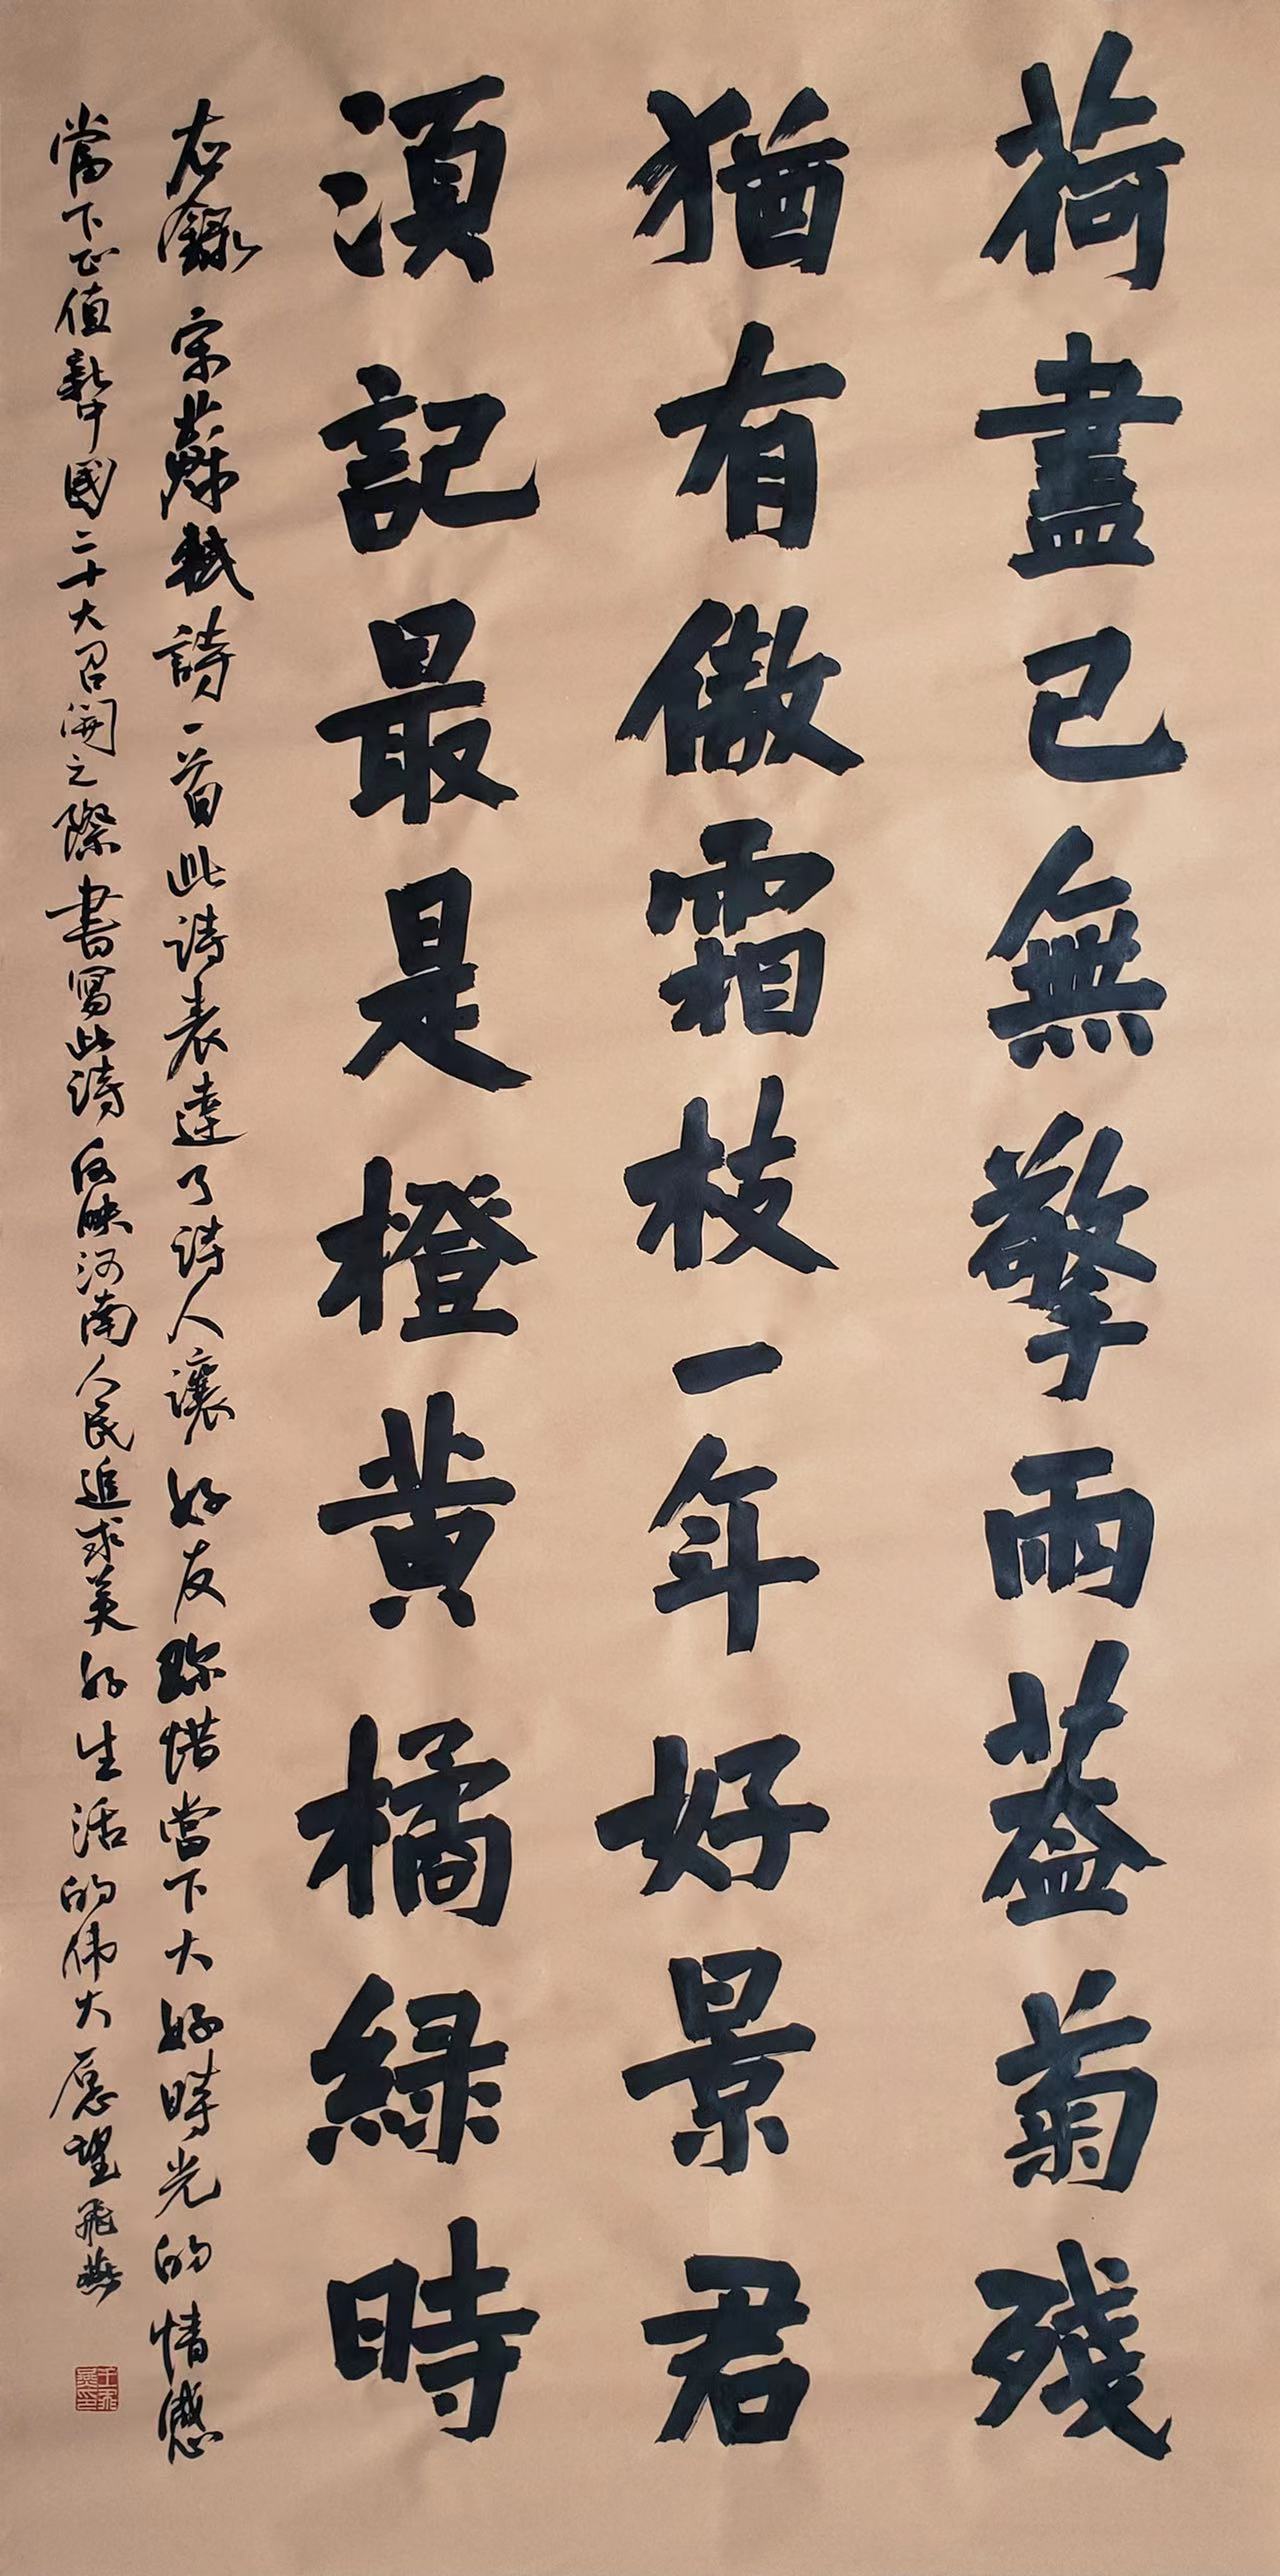 荷盡已無擎雨蓋菊殘
猶有傲霜枝一年好景君
須記最是橙黃橘綠時
右錄宋蘇軾詩一首此詩表達了詩人讓好友珍惜當下大好時光的情感
當下正值新中國二十大召開之際書寫此詩反映河南人民追求美好生活的伟大愿望飛燕
王飛燕印